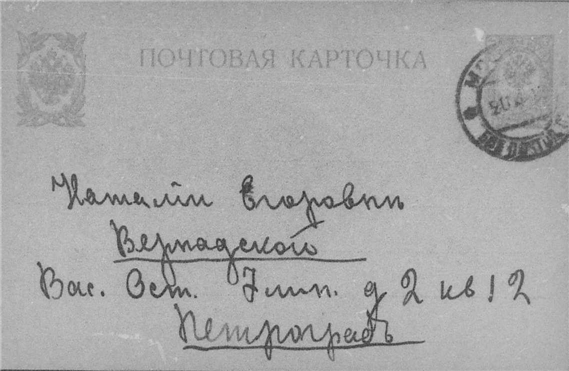 ПОЧТОВАЯ КАРТОЧКА
Наталіи Егоровнѣ
Вернадской
Вас. Ост. 7 лин. д 2 кв 12
Петроградъ